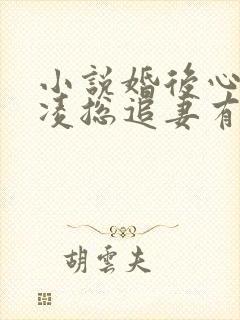 小說婚後心
凌總追妻有
胡雲夫